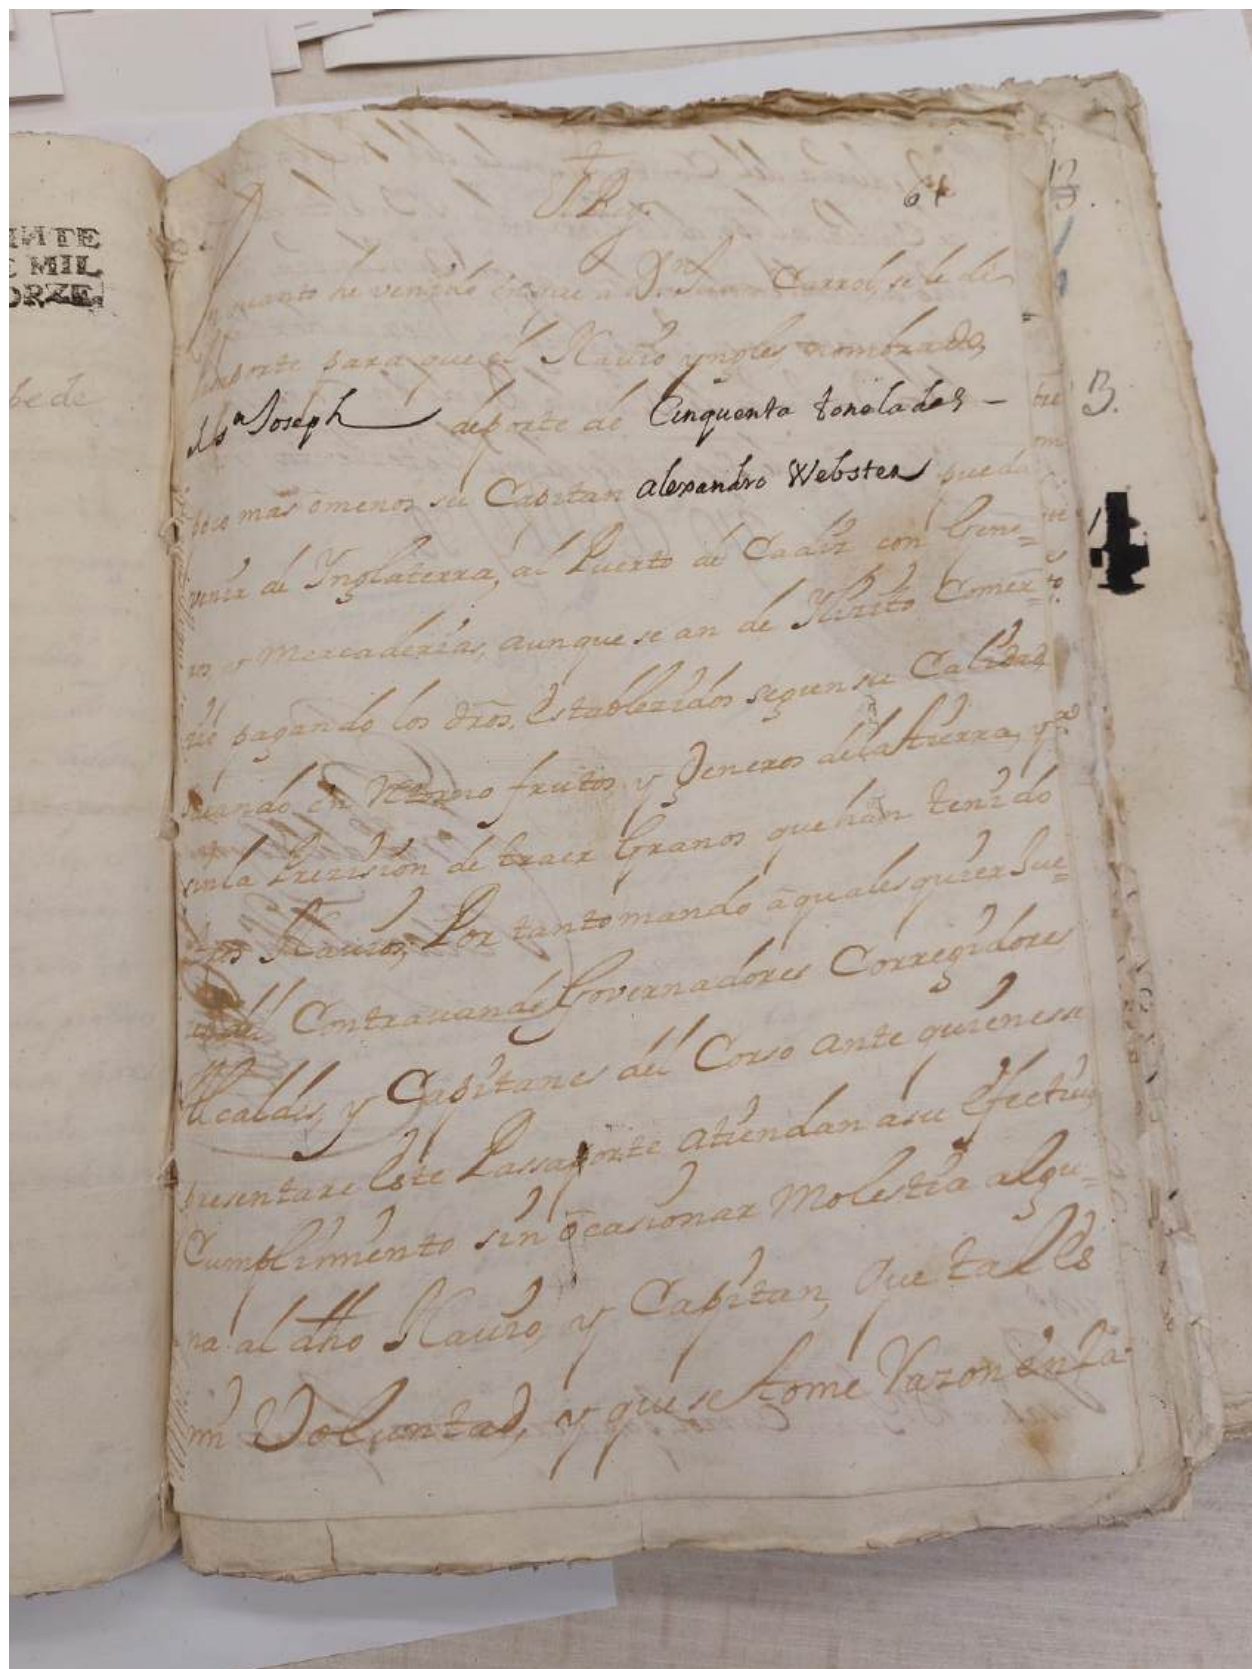 INTE
E MIL
ORZE
be de
El Rey.
64
quanto he venido en que a Dn Carrol, se le dé
Pasaporte para que el Navio yngles, nombrado,
Sn Joseph de porte de Cinquenta toneladas –
poco mas ōmenos su Capitan alexandro Webster pueda
venir de Ynglaterra, al Puerto de Cadiz con Gene=
ros y Mercaderias, aunque sean de Ylizito Comer=
pagando los dros. Establezidos segun su Calidad,
en Retorno frutos y Jeneros dela tierra, y
sinla Prezision de traer Granos que hàn tenido
otros Navios; Por tanto mando à qualesquier Jue=
Contravando Governadores Corregidores
Alcaldes, y Capitanes del Corso ante quienes se
presentare este Passaporte atiendan a su efectivo
Cumplimiento sin ôcasionar Molestia algu=
na al dho Navio, y Capitan, Que tal es
mi Voluntad, y que se tome Razon en la
13
3.